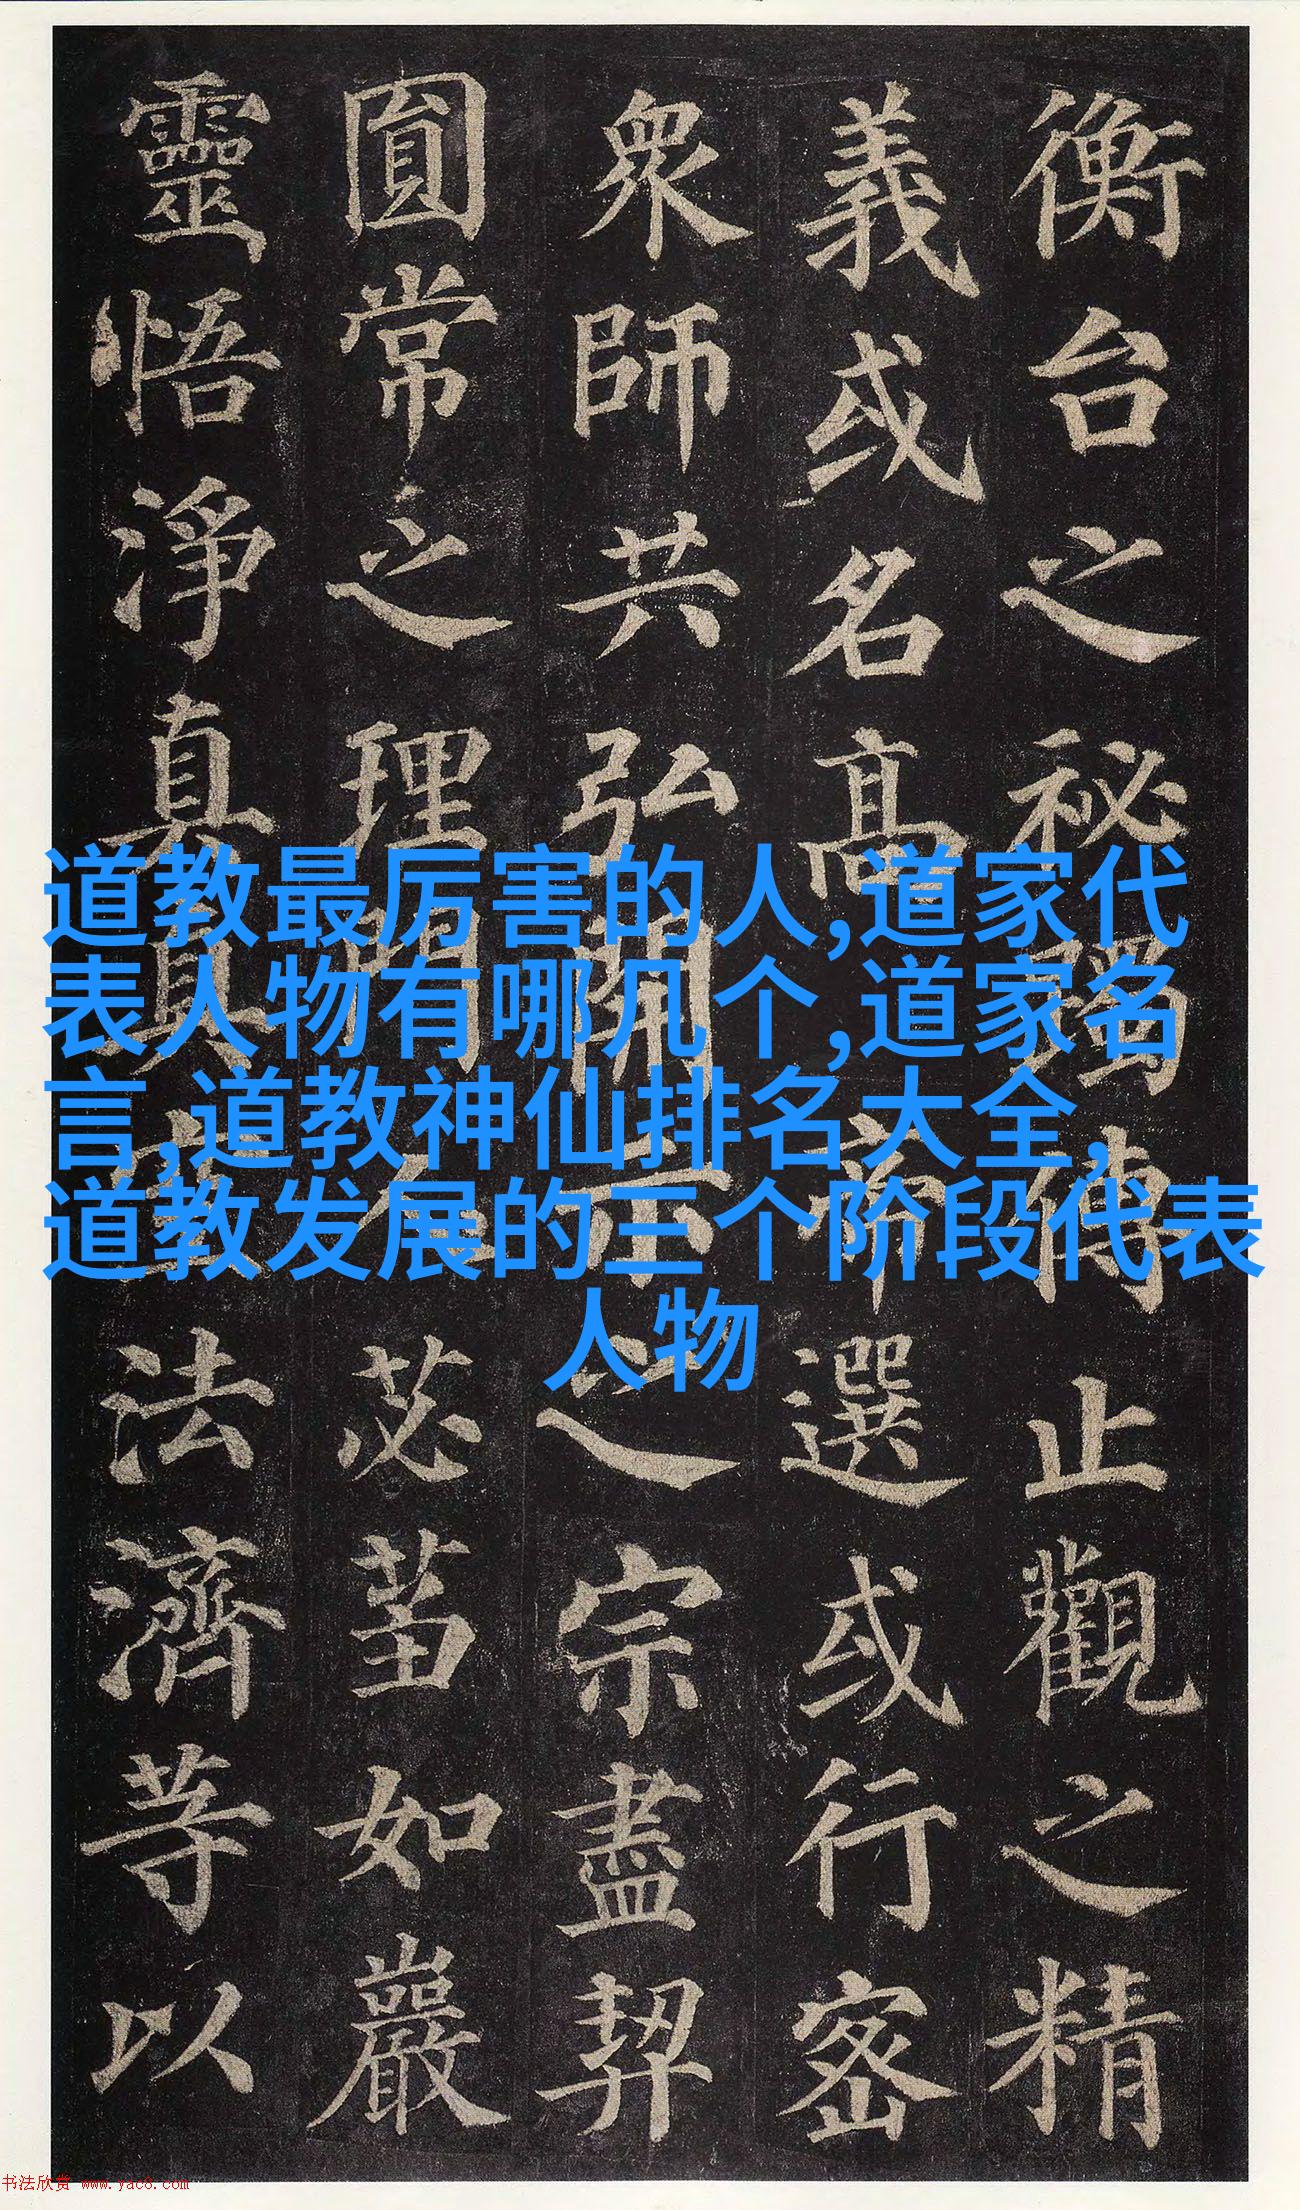 衡台之秘躅傳止觀之精
義或名高帝選或行密
眾師共弘開示之宗盡契
圓常之理門人苾芻如巖
靈悟淨真真空法濟等以
道教最厉害的人,道家代
表人物有哪几个,道家名
言,道教神仙排名大全,
道教发展的三个阶段代表
人物
书法欣赏 www.yac8.com